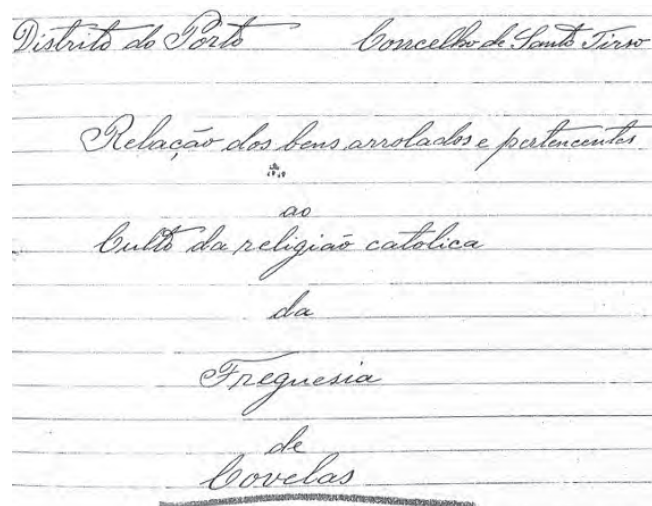 Distrito do Porto Concelho de Santo Tirso
Relação dos bens arrolados e pertencentes
ao
Culto da religião catolica
da
Freguesia
de
Covelas